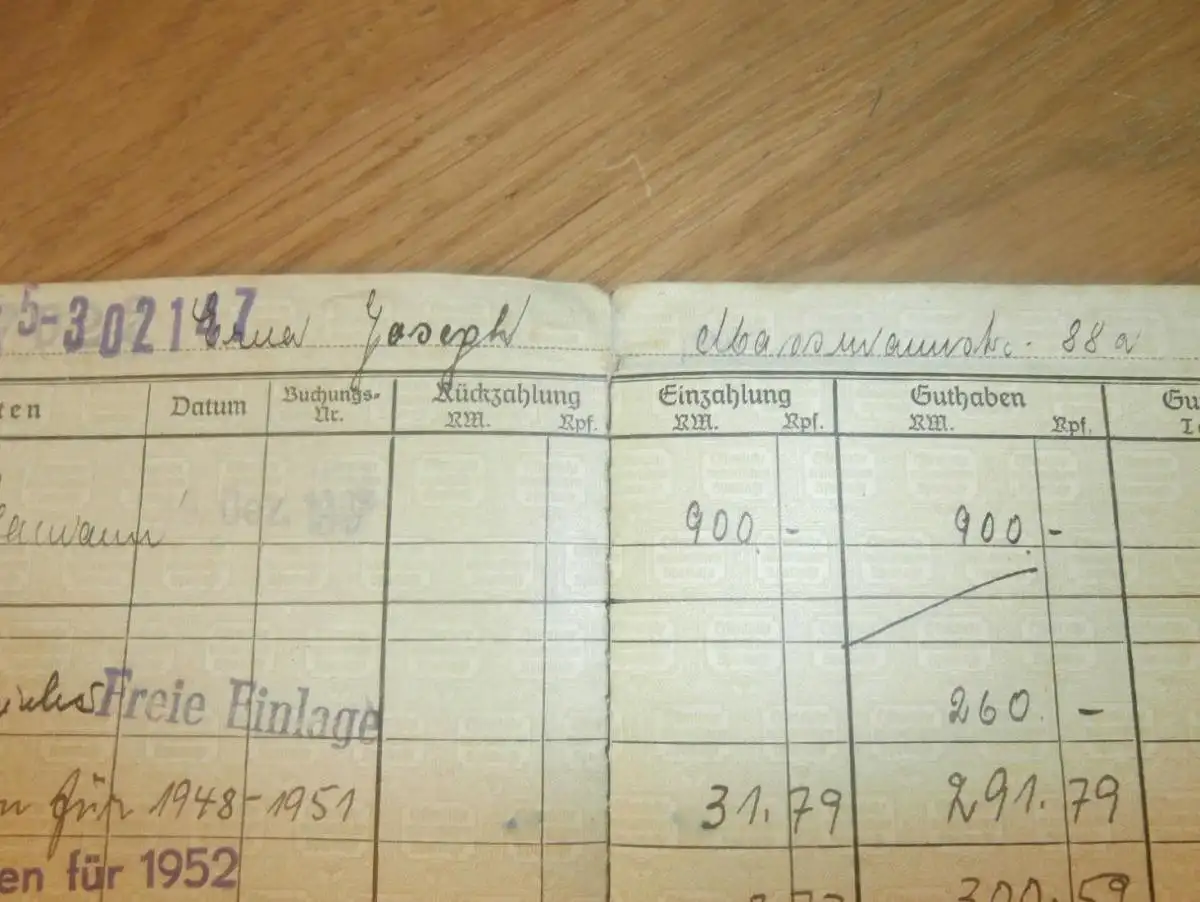 5-302147 Erna Joseph Massmannstr. 88a
ten Datum Buchungs-Nr. Rückzahlung Einzahlung Guthaben Gu
RM. Rpf. RM. Rpf. RM. Rpf.
Dez. 900 - 900 -
Freie Einlage 260. -
n für 1948-1951 31.79 291.79
en für 1952 300.59